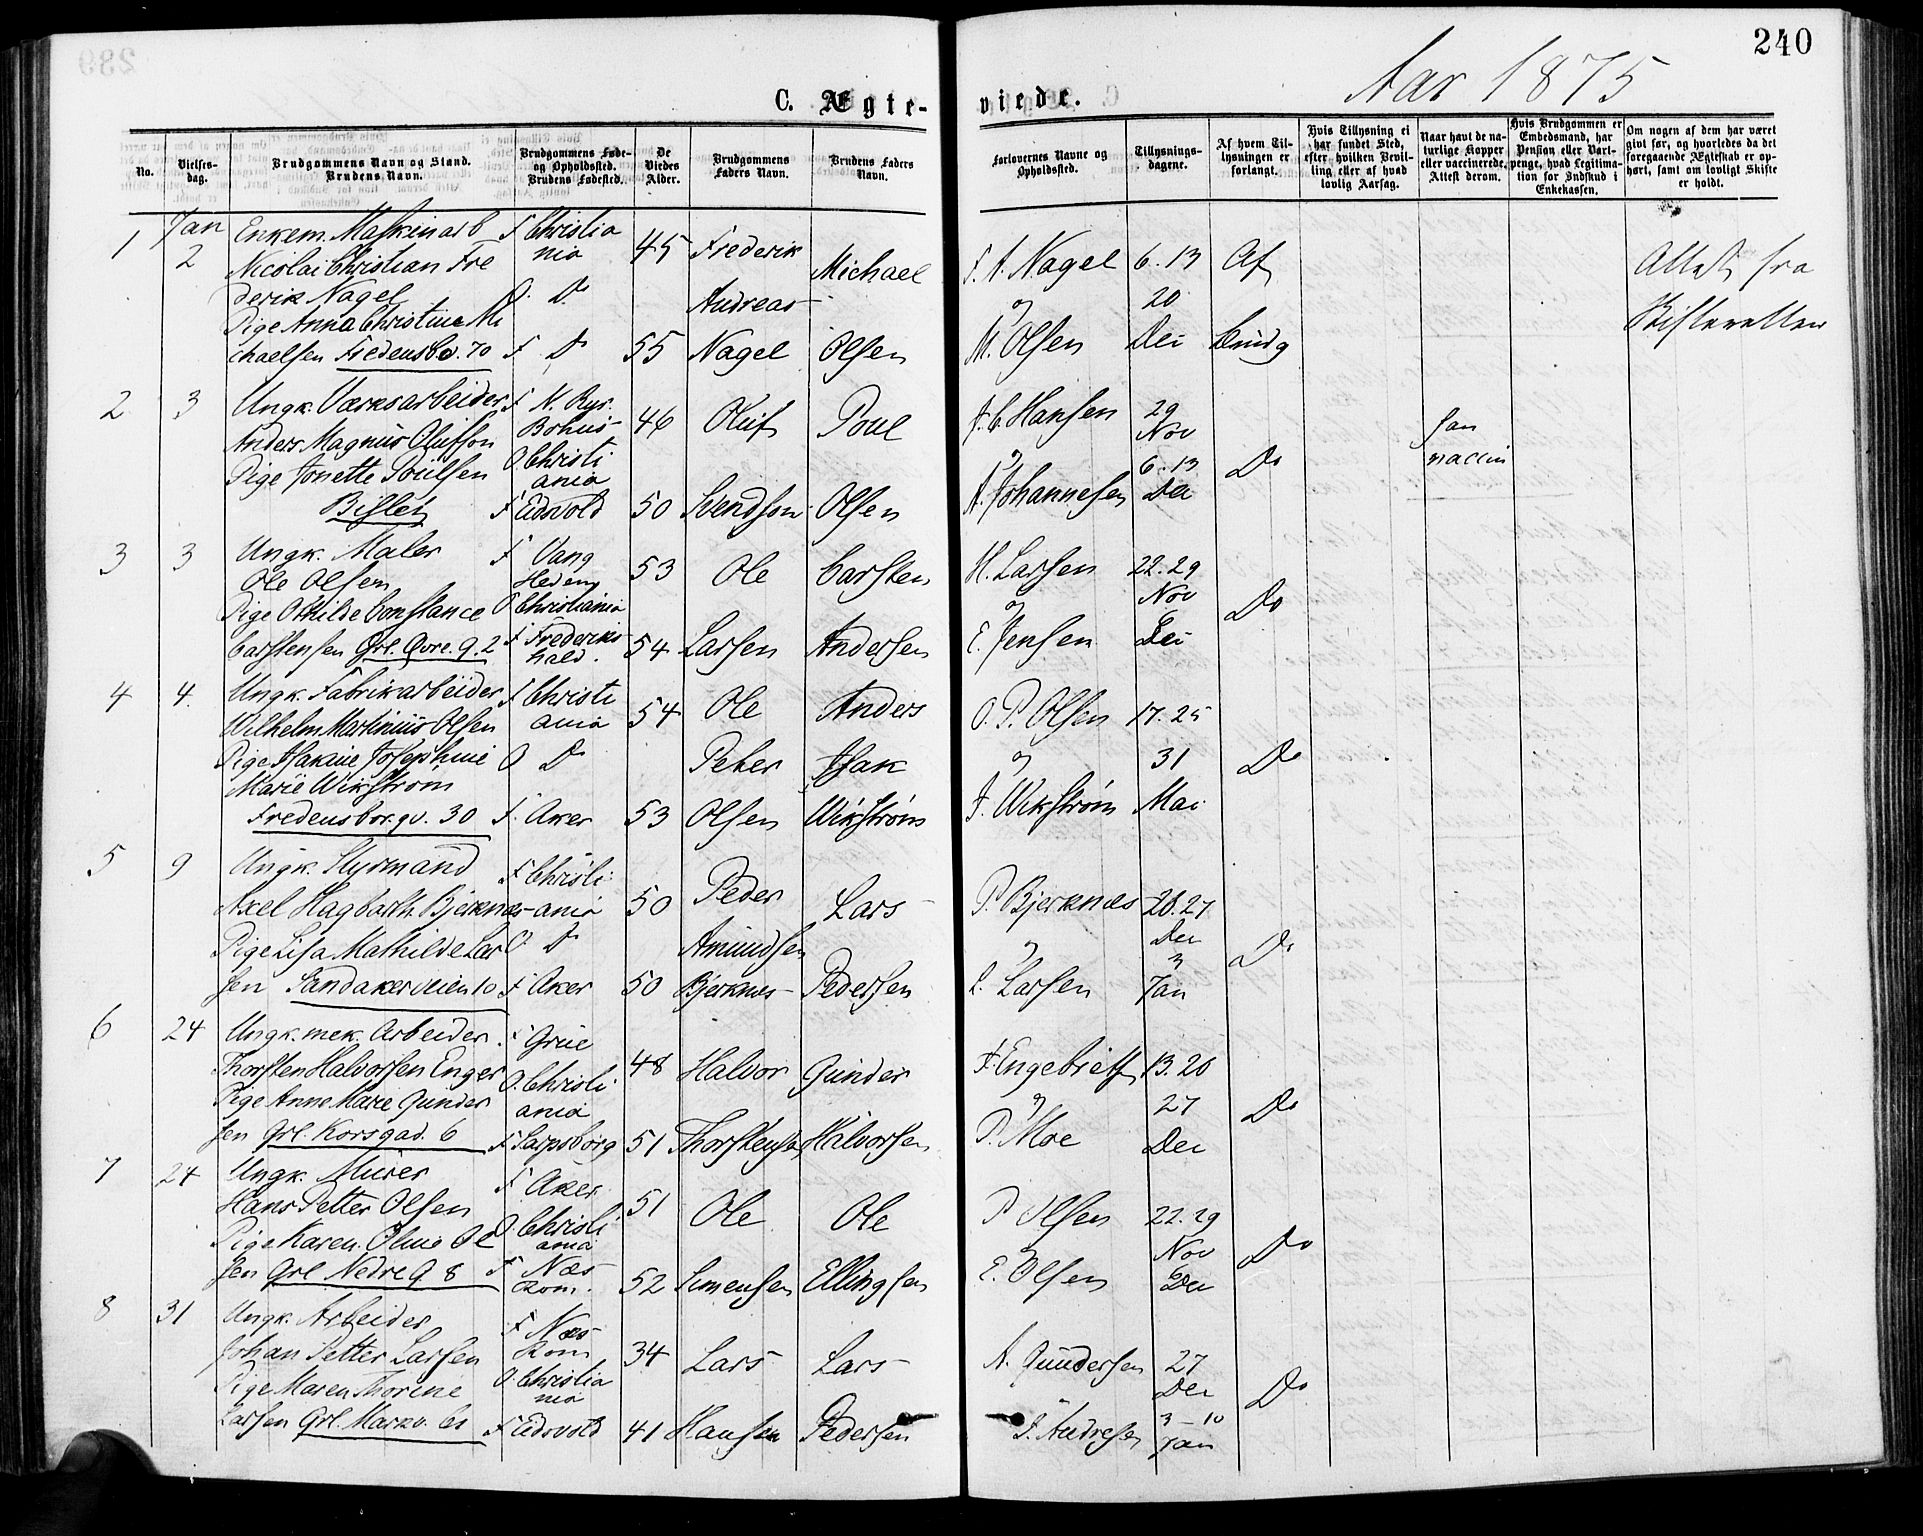 240
C. Ægte-
viede.
Aar 1875
No.
Vielses-
dag.
Brudgommens Navn og Stand.
Brudens Navn.
Brudgommens Føde-
og Opholdssted.
Brudens Fødested.
De
Viedes
Alder.
Brudgommens
Faders Navn.
Brudens Faders
Navn.
Forlovernes Navne og
Opholdssted.
Tillysnings-
dagene.
Af hvem Til-
lysningen er
forlangt.
Hvis Tillysning ei
har fundet Sted,
efter hvilken Bevil-
ling eller af hvad
lovlig Aarsag.
Naar havt de na-
turlige Kopper
eller vaccinerede,
Attest derom.
Hvis Brudgommen er
Embedsmand, har
Pension eller Vart-
penge, hvad Legitima-
tion for Indskud i
Enkekassen.
Om nogen af dem har været
givt før, og hvorledes da det
foregaaende Ægteskab er op-
hørt, samt om lovligt Skifte
er holdt.
1 Jan 2
Enkem. Maskinarb
Nicolai Christian Fre
derik Nagel
Pige Anna Christine Mi
chaelsen Fredensbo. 70
F Christia
nia
O. Do
F Do
45
55
Frederik
Andreas
Nagel
Michael
Olsen
F. A. Nagel
og
M. Olsen
6. 13
20
Dec
Af
Brudg
Attest fra
Skifteretten
2 3
Ungk. Værksarbeider
Anders Magnus Olufson
Pige Jonette Poulsen
Bislet
F. N. Ryr.
Bohus
O. Christi
ania
F Eidsvold
46
50
Oluf
Svendson
Poul
Olsen
J. C. Hansen
og
A. Johannesen
29
Nov
6. 13
Dec
Do
Jan
vaccin
3 3
Ungk. Maler
Ole Olsen
Pige Othilde Constance
Carstensen Grl. Øvre. g. 2
F Vang
Hedem
O Christiania
F Frederiks
hald.
53
54
Ole
Larsen
Carsten
Andersen
H. Larsen
og
E. Jensen
22. 29
Nov
6
Dec
Do
4 4.
Ungk. Fabrikarbeider
Wilhelm Martinius Olsen
Pige Isakine Josephine
Marie Wikstrøm
Fredensborgv. 30
F Christi
ania
O Do
F. Aker
54
53
Ole
Peter
Olsen
Anders
Isak
Wikstrøm
O. P. Olsen
og
J. Wikstrøm
17. 25
31
Mai
Do
5 9
Ungk. Styrmand
Axel Hagbarth Bjerknæs
Pige Lisa Mathilde Lar
sen Sandakerveien 10
F Christi
ania
O. Do
F Aker
50
50
Peder
Amundsen
Bjerknes
Lars
Pedersen
P. Bjerknæs
og
L. Larsen
26. 27
Dec
3
Jan
Do
6 24
Ungk. mek. Arbeider.
Thorsten Halvorsen Enger
Pige Anne Marie Gunder
sen Grl. Korsgad. 6
F Grue
O. Christi
ania
F Sarpsborg
48
51
Halvor
Thorstensen
Gunder
Halvorsen
og
P. Moe
13. 20
27
Dec
Do
7 24
Ungk. Murer
Hans Petter Olsen
Pige Karen Oline Ol
sen Grl Nedre G 8
F Aker
O. Christi
ania
F Næs
Rom.
51
52
Ole
Simensen
Ole
Ellingsen
P Olsen
E. Olsen
22. 29
Nov
6
Dec
Do
8 31
Ungk. Arbeider
Johan Petter Larsen
Pige Maren Thorine
Larsen Grl. Markv. 61
F Næs
Rom
O. Christia
nia
F Eidsvold
34
41
Lars
Hansen
Lars
Pedersen
A. Gundersen
27
Dec
3 – 10
Jan
Do